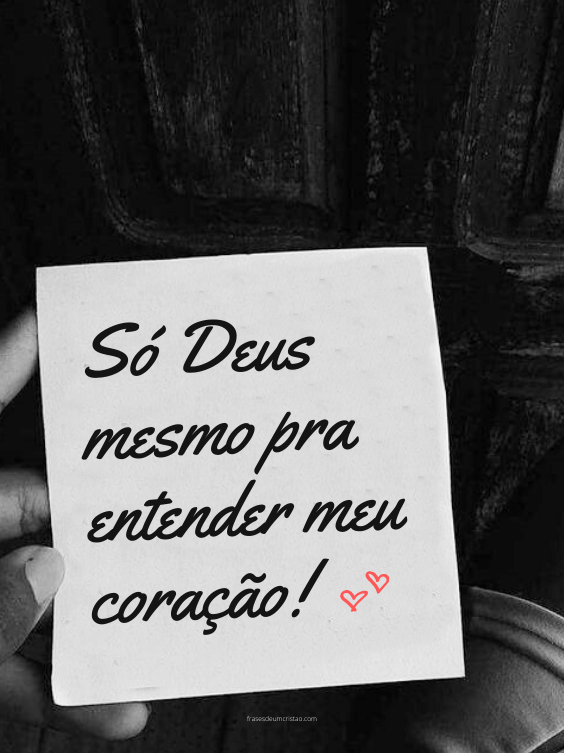 Só Deus
mesmo pra
entender meu
coração!
frasesdeumcristao.com